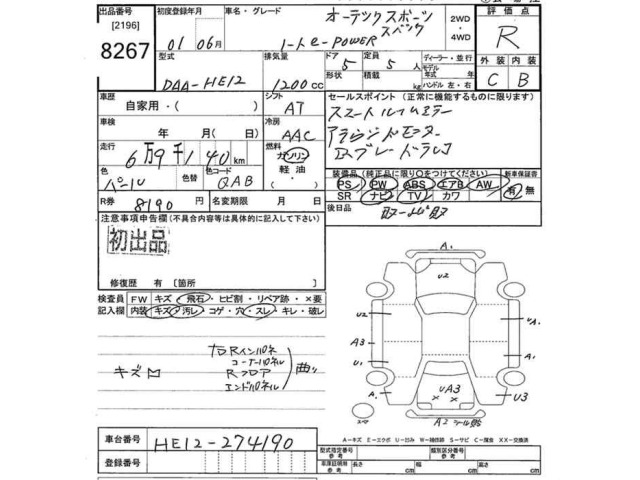 出品番号
[2196]
8267
初度登録年月
01 06月
車名・グレード
オーテックスポーツ
スペック
ノート e-POWER
2WD
・
4WD
評価点
R
外装 内装
C B
型式
DAA-HE12
排気量
1200 CC
ドア 5
形状
定員 5 人
積載 kg
ディーラー・並行
モデル
年式 年
ハンドル 左・右
車歴
自家用・( )
シフト
AT
車検
年 月( 日)
冷房
AAC
走行
6万9千140 km
燃料
ガソリン
軽油
・
( )
色
パール
色替
色コード
QAB
R券
8190 円
名変期限 月 日
セールスポイント (正常に機能するものに限ります)
スマートルームミラー
アラウンドモニター
装備品(純正品に限り○をつけてください)
PS PW ABS エアB AW
SR ナビ TV カワ
新車保証書
有 無
後日品
注意事項申告欄(不具合内容等は具体的に記入して下さい)
初出品
修復歴 有 [箇所 ]
検査員
記入欄
FW キズ・飛石・ヒビ割・リペア跡・×要
内装 キズ・汚レ・コゲ・穴・スレ・キレ・破レ
右Rインパネ
コーナーパネル
Rフロア
エンドパネル
曲り
キズ凹
A1
U2
U2
A3
UA3
UA1
A1
U3
A2
スリ
A−キズ E−エクボ U−凹み W−補修跡 S−サビ C−腐食 XX−交換済
車台番号
HE12-274190
登録番号
型式指定番号
参考
類別区分番号
参考
車庫証明用
参考
長さ cm
幅 cm
高さ cm